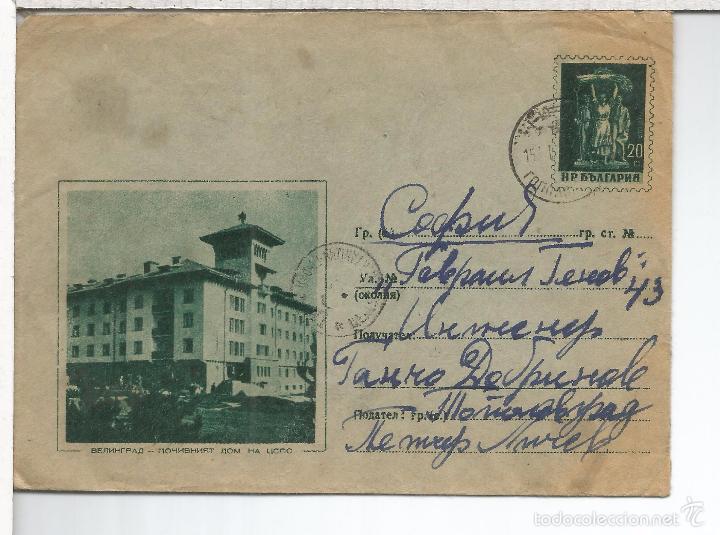 20
НР БЪЛГАРИЯ
Гр. (с.) София гр. ст. №
Ул. № „Гаврил Генов“ 43
(околия)
Получател: Инженер
Ганчо Добринов
Подател: гр. (с.) Тополовград
Петър
ВЕЛИНГРАД – ПОЧИВНИЯТ ДОМ НА ЦСПС
© todocoleccion.net